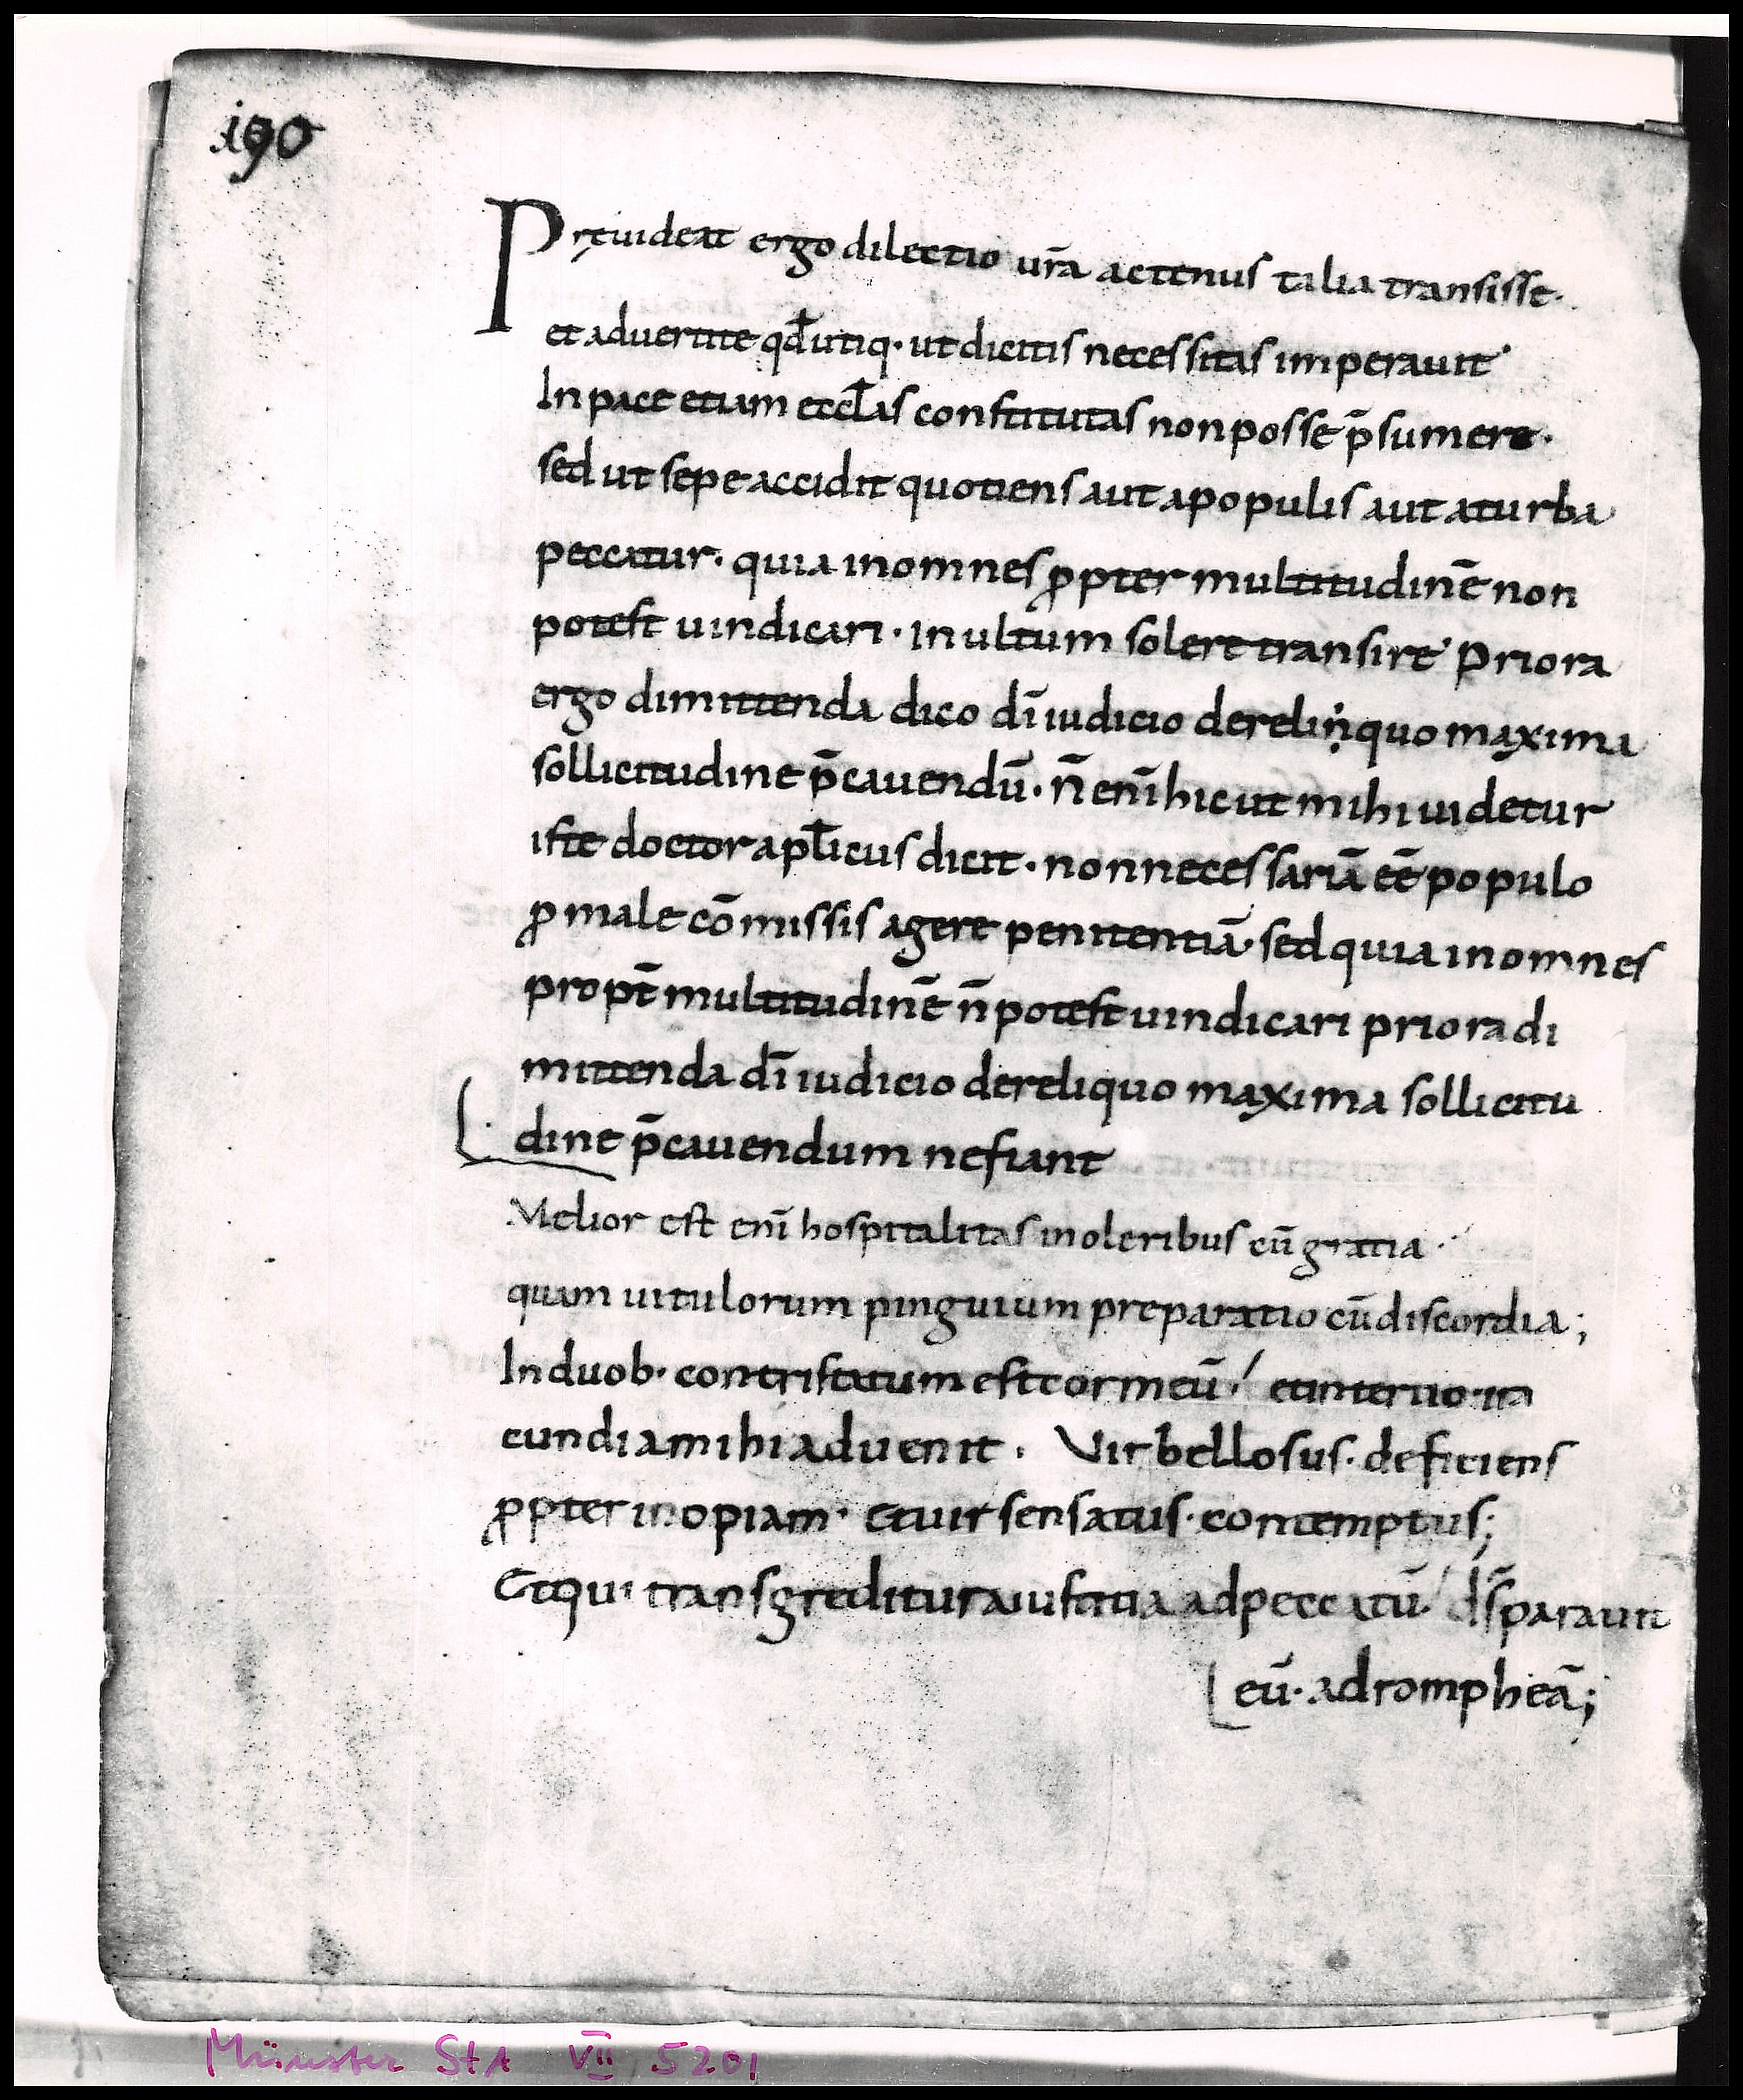 190
Pręuideat ergo dilectio ur̄a actenus talia transisse·
et aduertite qđ utiq· ut dicitis necessitas imperauit·
In pace etiam eccƚas constitutas non posse p̄sumere·
sed ut sepe accidit quotiens aut a populis aut a turba
peccatur· quia in omnes ꝓpter multitudinē non
potest uindicari· inultum solere transire· Priora
ergo dimittenda dico dī iudicio derelinquo maxima
sollicitudine p̄cauendū· n̄ enī hic ut mihi uidetur
iste doctor apƚicus dicit· non necessariā eē populo
ꝓ male cōmissis agere penitentiā· sed quia in omnes
propt̄ multitudinē n̄ potest uindicari priora di
mittenda dī iudicio dereliquo maxima sollicitu
dine p̄cauendum ne fiant
Melior est enī hospitalitas in oleribus cū gratia·
quam uitulorum pinguium preparatio cū discordia;
In duob· contristatum est cor meū·/ et in tertio ira
cundia mihi aduenit· Vir bellosus· deficiens
ꝓpter inopiam· Et uir sensatus· contemptus;
Et qui transgreditur a iustitia ad peccatū·/ d̄s parauit
eū· ad rompheā;
Münster StA VII 5201